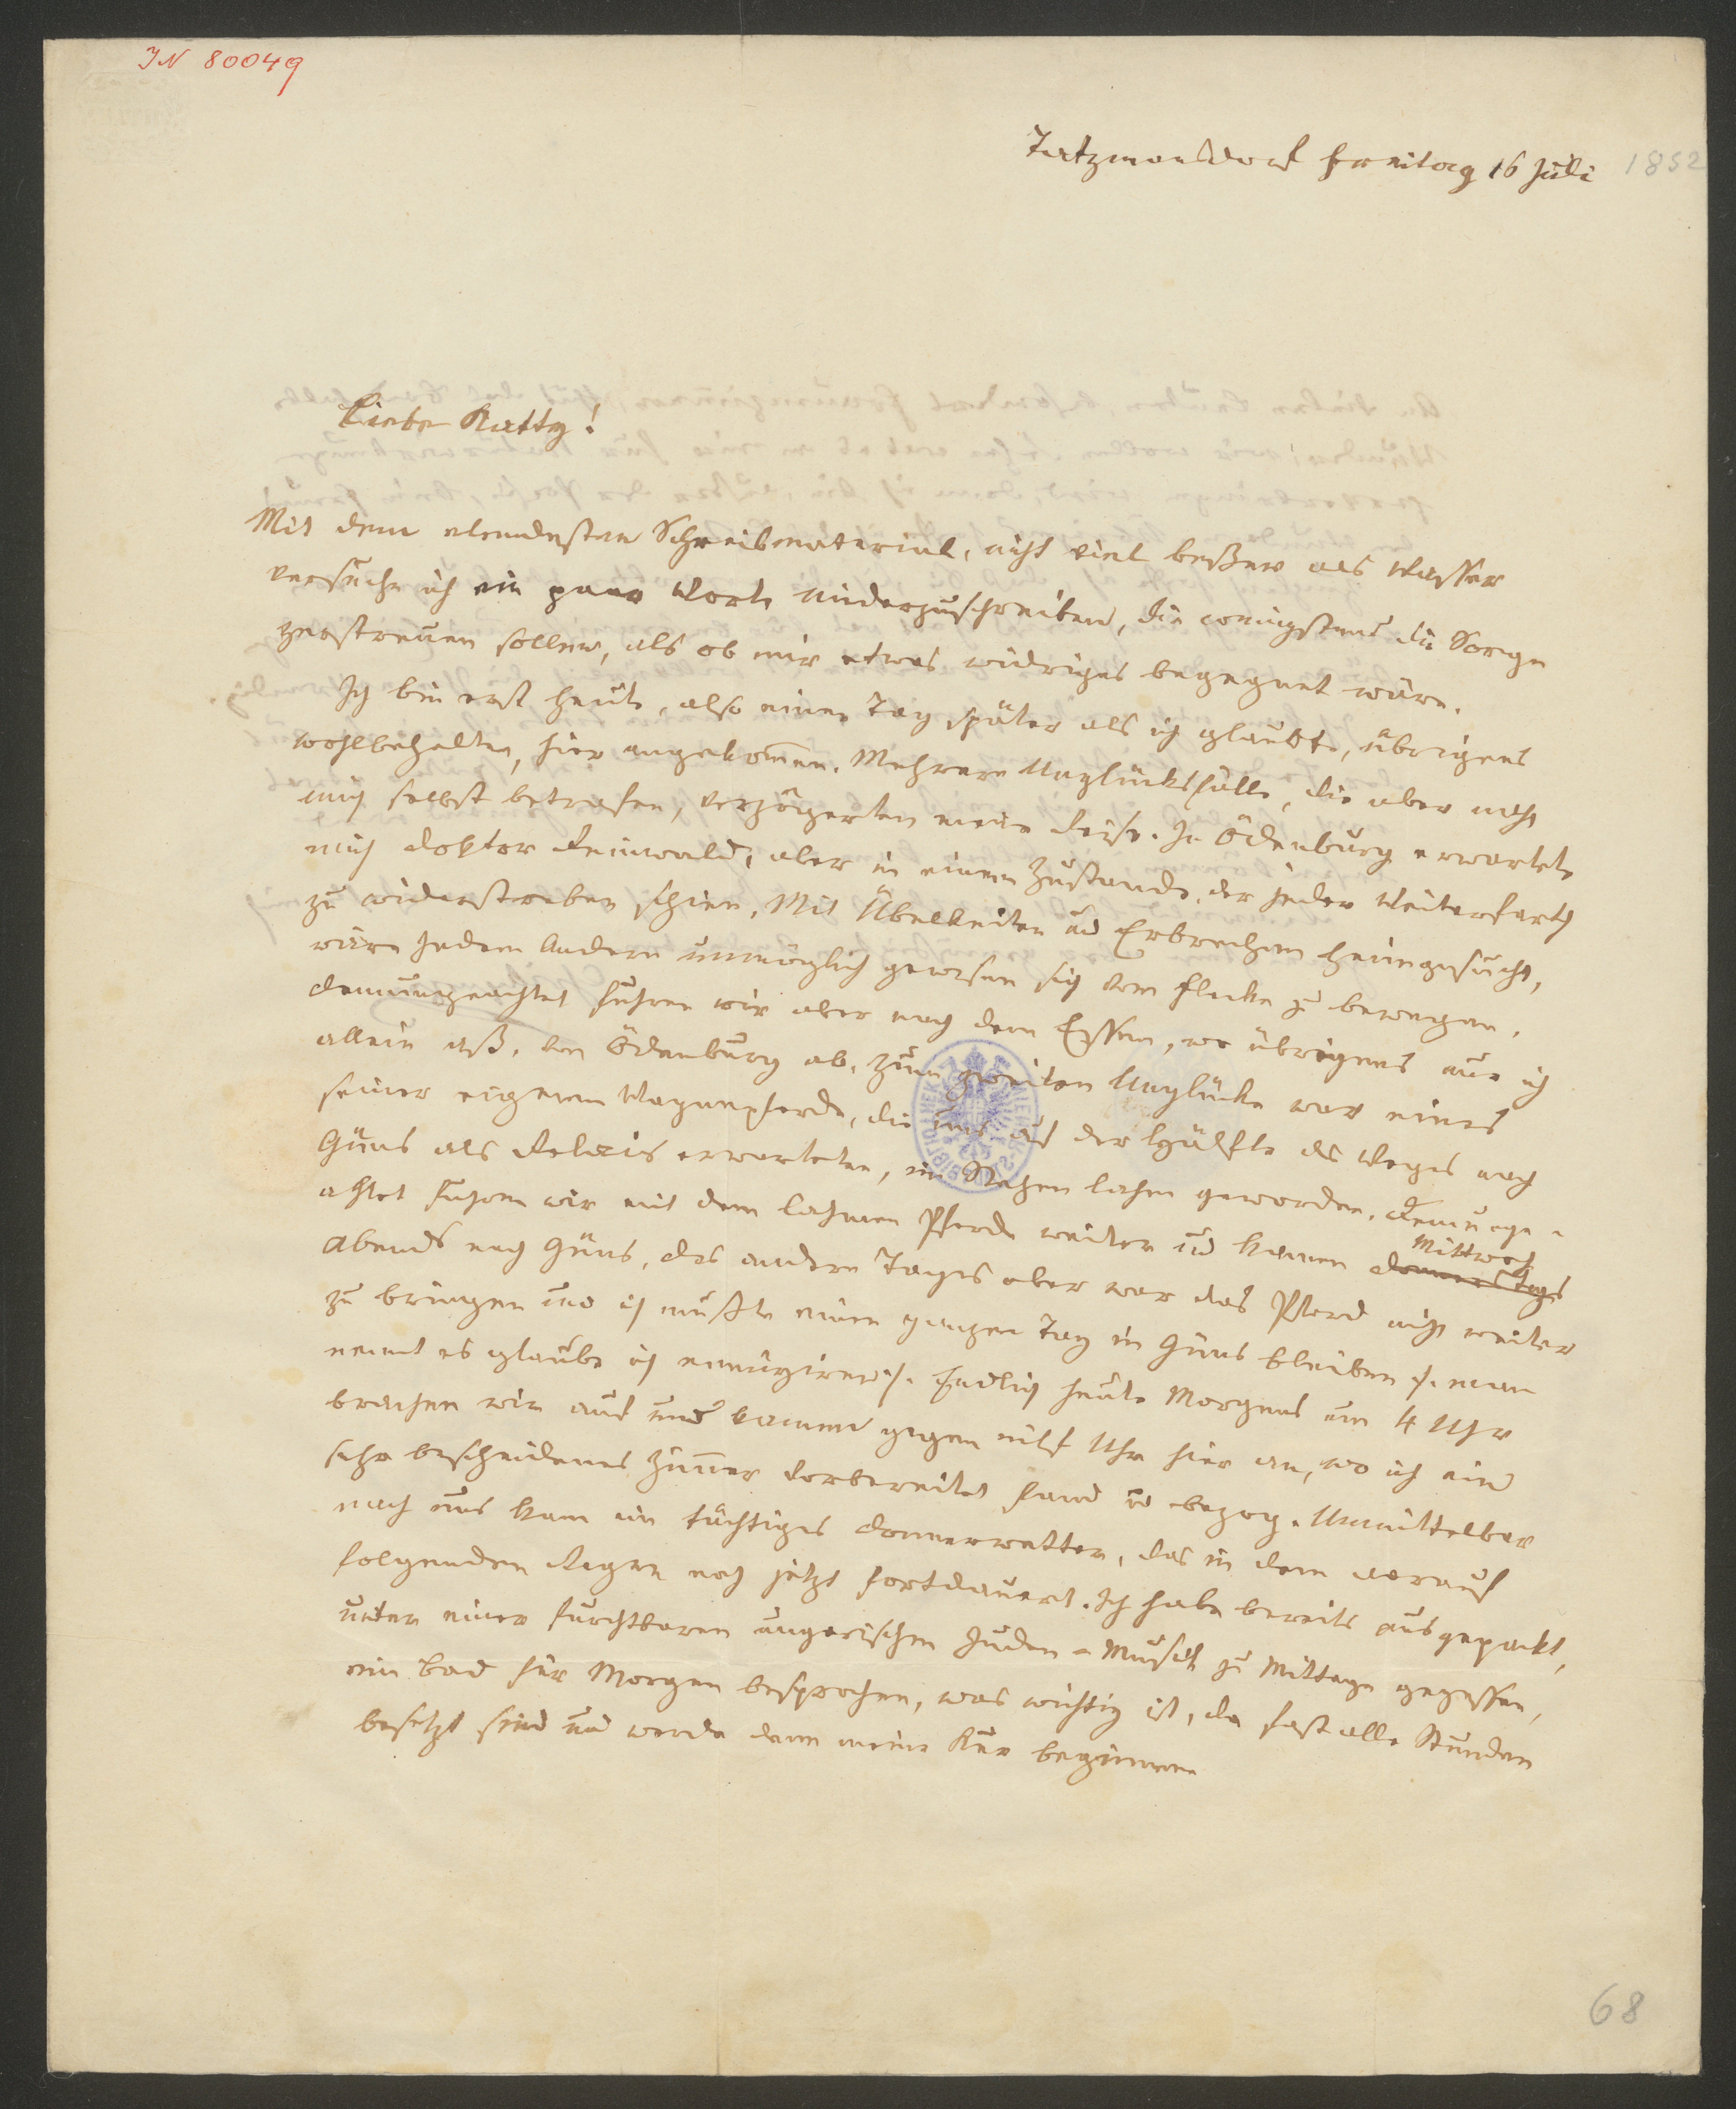 IN 80049
Tatzmansdorf Freitag 16 Juli 1852
Liebe Katty!
Mit dem elendesten Schreibmaterial, nicht viel beßer als Wasser
versuche ich ein paar Worte niederzuschreiben, die wenigstens die Sorge
zerstreuen sollen, als ob mir etwas widriges begegnet wäre.
Ich bin erst heute, also einen Tag später als ich glaubte, übrigens
wohlbehalten, hier angekom̄en. Mehrere Unglücksfälle, die aber nicht
mich selbst betrafen, verzögerten meine Reise. In Ödenburg erwartete
mich Doktor Reinwald, aber in einem Zustande, der jeder Weiterfarth
zu widerstreben schien. Mit Übelkeiten und Erbrechen heimgesucht,
wäre jedem Andern unmöglich gewesen sich vom Flecke zu bewegen.
demungeachtet fuhren wir aber nach dem Essen, wo übrigens nur ich
allein aß, von Ödenburg ab. Zum zweiten Unglücke war eines
seiner eigenen Wagenpferde, die uns auf der Hälfte des Weges nach
Güns als Relais erwarteten, im Stehen lahm geworden. Demunge-
achtet fuhren wir mit dem lahmen Pferde weiter und kamen Donnerstags Mittwoch
Abends nach Güns, des andern Tages aber war das Pferd nicht weiter
zu bringen und ich mußte einen ganzen Tag in Güns bleiben /: man
nennt es glaube ich ennuyiren :/. Endlich heute Morgens um 4 Uhr
brachen wir auf und kamen gegen eilf Uhr hier an, wo ich ein
sehr bescheidenes Zim̄er vorbereitet fand u bezog. Unmittelbar
nach uns kam ein tüchtiges Donnerwetter, das in dem darauf
folgenden Regen noch jetzt fortdauert. Ich habe bereits ausgepackt,
unter einer furchtbaren ungarischen Juden-Musik zu Mittage gegessen,
ein Bad für Morgen besprochen, was wichtig ist, da fast alle Stunden
besetzt sind und werde denn meine Kur beginnen
68